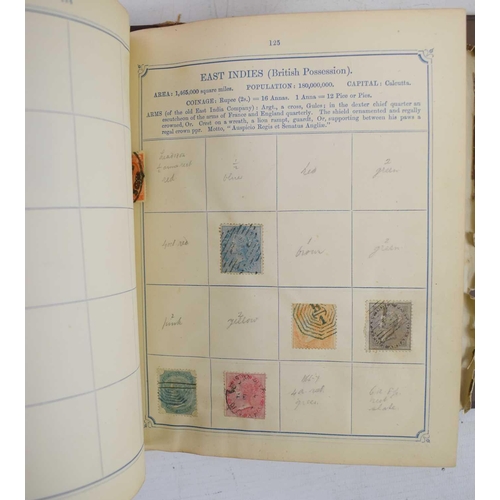 125
EAST INDIES (British Possession).
AREA: 1,465,000 square miles. POPULATION: 180,000,000. CAPITAL: Calcutta.
COINAGE: Rupee (2s.) = 16 Annas. 1 Anna = 12 Pice or Pies.
ARMS (of the old East India Company): Argt., a cross, Gules; in the dexter chief quarter an
escutcheon of the arms of France and England quarterly. The shield ornamented and regally
crowned, Or. Crest on a wreath, a lion rampt. guardt., Or, supporting between his paws a
regal crown ppr. Motto, "Auspicio Regis et Senatus Angliæ."
red
½ blue
red
2 green
brown
2 green
2 pink
yellow
green